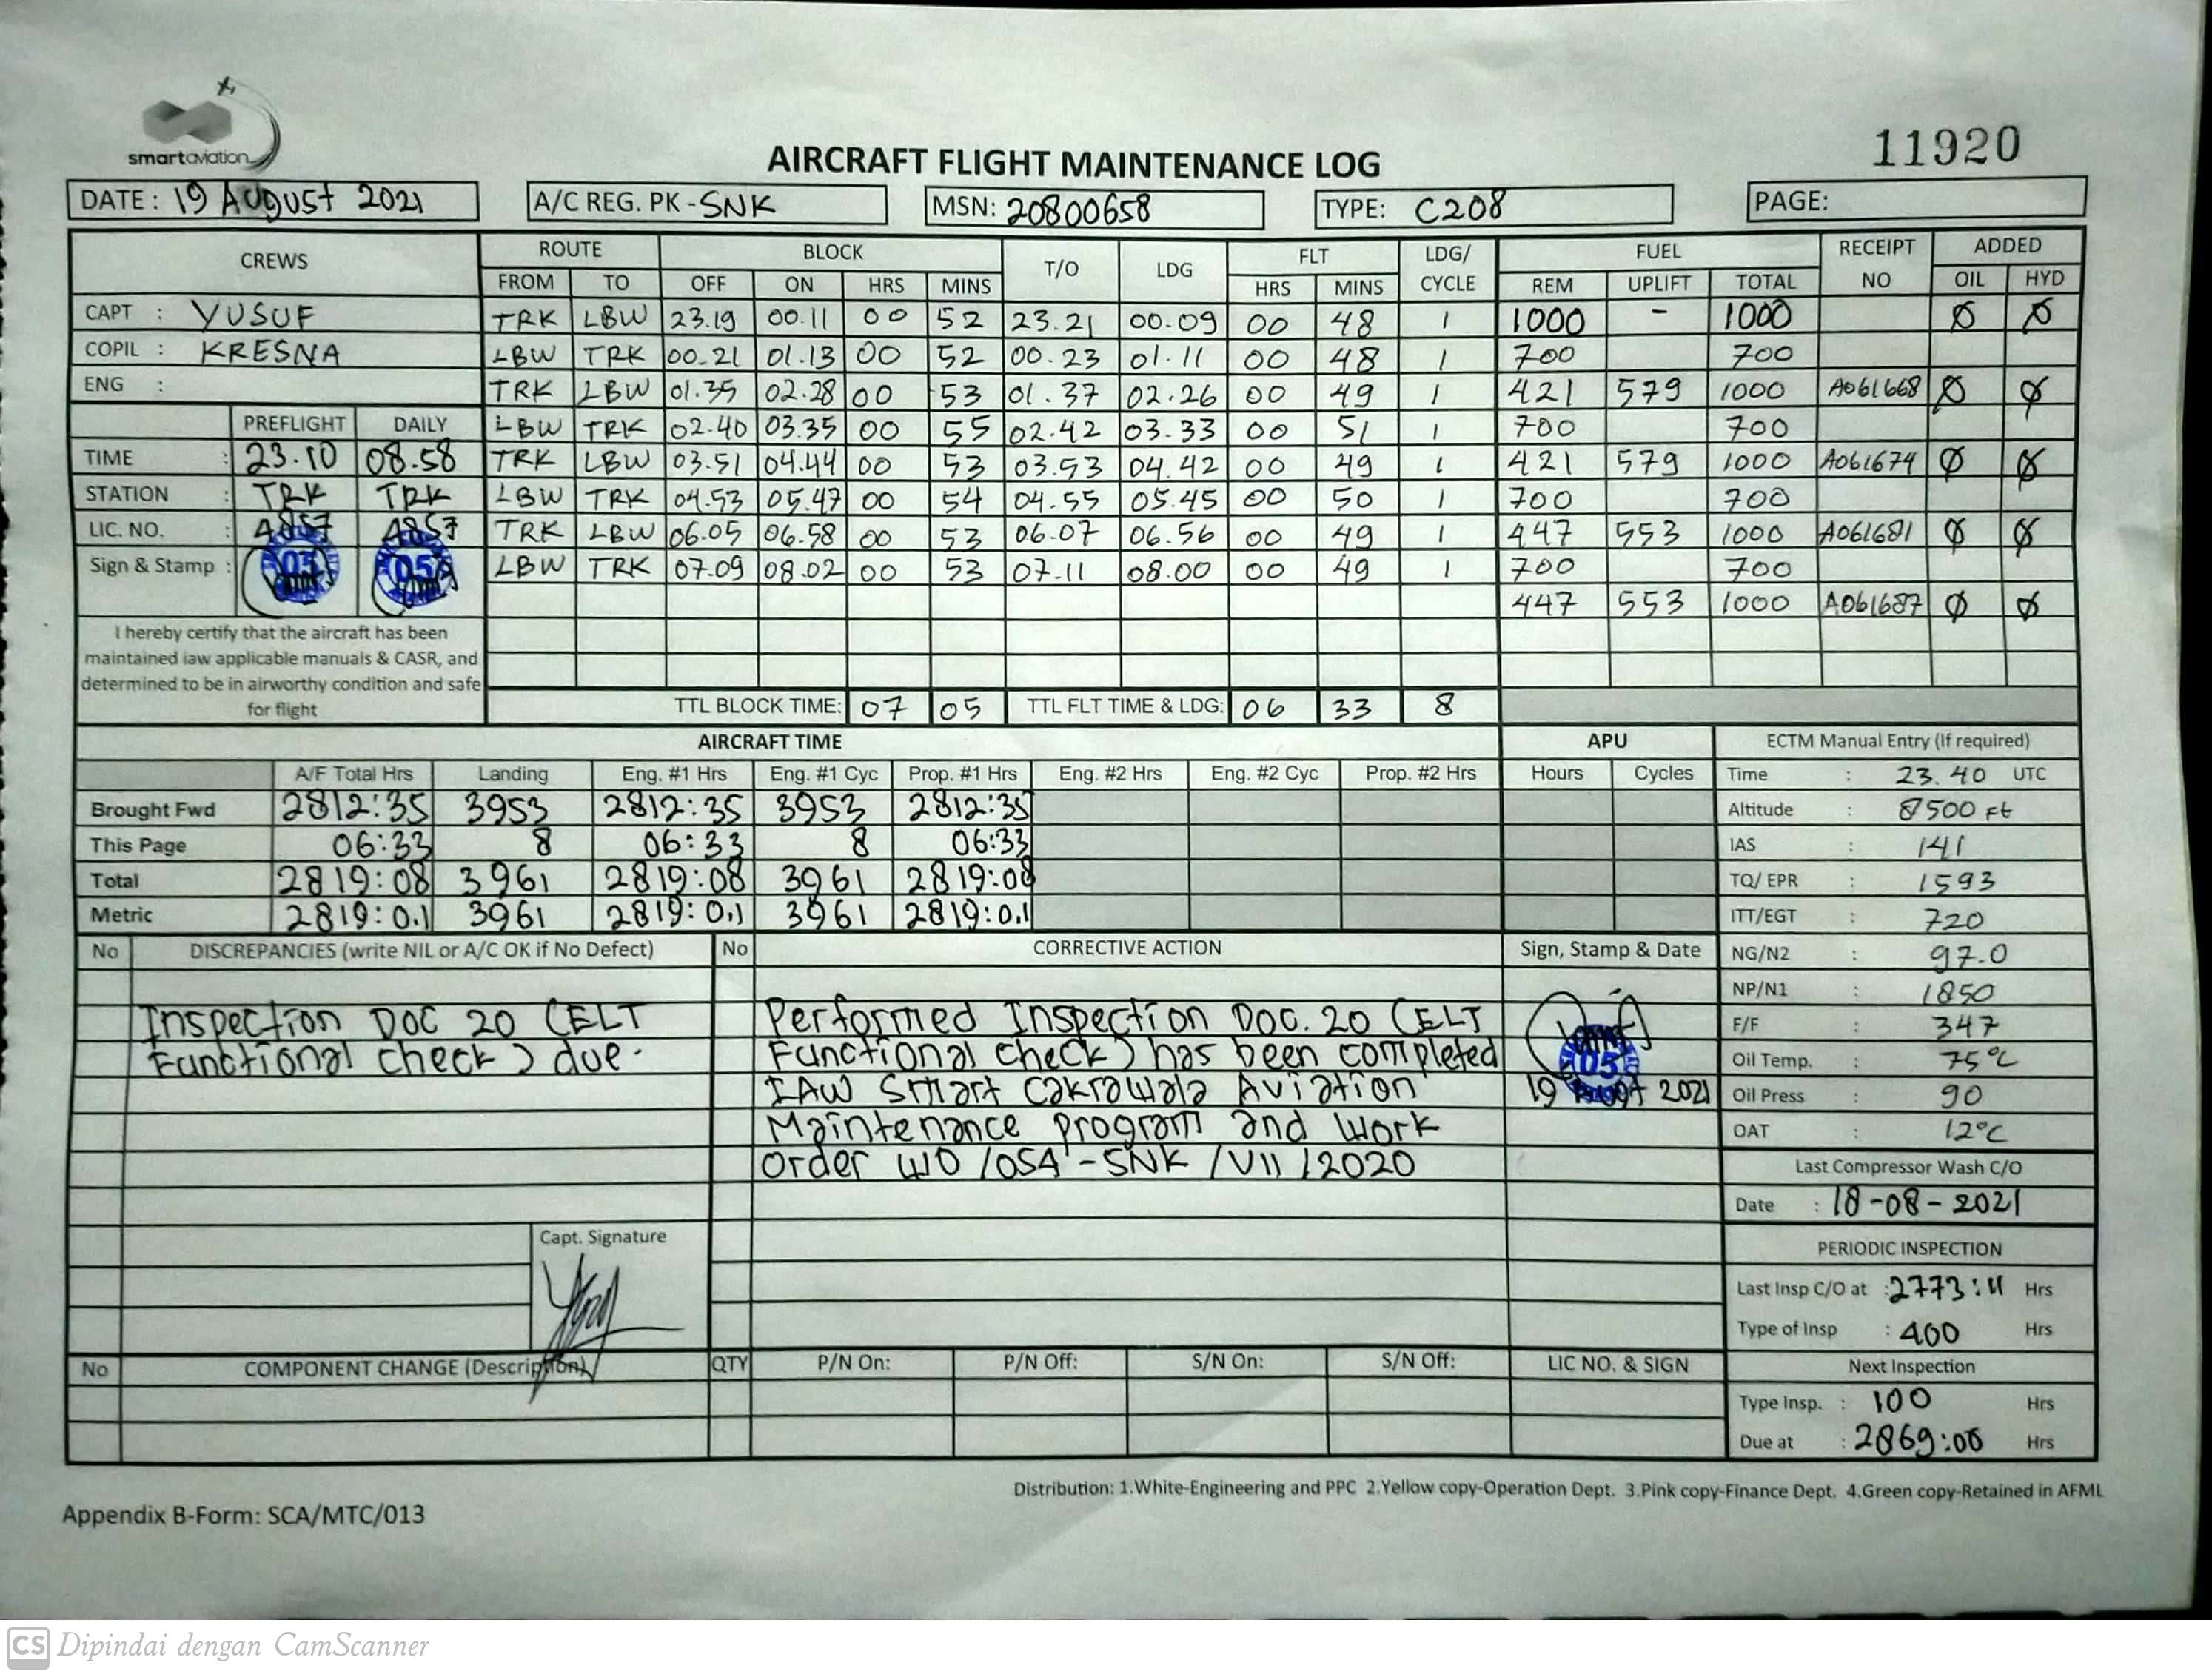 smartaviation
11920
AIRCRAFT FLIGHT MAINTENANCE LOG
DATE : 19 AUGUST 2021 A/C REG. PK - SNK MSN: 20800658 TYPE: C208 PAGE:
CREWS ROUTE BLOCK T/O LDG FLT LDG/ CYCLE FUEL RECEIPT NO ADDED
FROM TO OFF ON HRS MINS HRS MINS REM UPLIFT TOTAL OIL HYD
CAPT : YUSUF TRK LBW 23.19 00.11 00 52 23.21 00.09 00 48 1 1000 - 1000 Ø Ø
COPIL : KRESNA LBW TRK 00.21 01.13 00 52 00.23 01.11 00 48 1 700 700
ENG : TRK LBW 01.35 02.28 00 53 01.37 02.26 00 49 1 421 579 1000 A061668 Ø Ø
PREFLIGHT DAILY LBW TRK 02.40 03.35 00 55 02.42 03.33 00 51 1 700 700
TIME : 23.10 08.58 TRK LBW 03.51 04.44 00 53 03.53 04.42 00 49 1 421 579 1000 A061674 Ø Ø
STATION : TRK TRK LBW TRK 04.53 05.47 00 54 04.55 05.45 00 50 1 700 700
LIC. NO. : A857 A857 TRK LBW 06.05 06.58 00 53 06.07 06.56 00 49 1 447 553 1000 A061681 Ø Ø
Sign & Stamp : 05 LBW TRK 07.09 08.02 00 53 07.11 08.00 00 49 1 700 700
447 553 1000 A061687 Ø Ø
I hereby certify that the aircraft has been
maintained iaw applicable manuals & CASR, and
determined to be in airworthy condition and safe
for flight
TTL BLOCK TIME: 07 05 TTL FLT TIME & LDG: 06 33 8
AIRCRAFT TIME APU ECTM Manual Entry (If required)
A/F Total Hrs Landing Eng. #1 Hrs Eng. #1 Cyc Prop. #1 Hrs Eng. #2 Hrs Eng. #2 Cyc Prop. #2 Hrs Hours Cycles Time : 23.40 UTC
Brought Fwd 2812:35 3953 2812:35 3953 2812:35 Altitude : 8500 Ft
This Page 06:33 8 06:33 8 06:33 IAS : 141
Total 2819:08 3961 2819:08 3961 2819:08 TQ/ EPR : 1593
Metric 2819:0.1 3961 2819:0.1 3961 2819:0.1 ITT/EGT : 720
No DISCREPANCIES (write NIL or A/C OK if No Defect) No CORRECTIVE ACTION Sign, Stamp & Date NG/N2 : 97.0
NP/N1 : 1850
Inspection DOC 20 (ELT Performed Inspection DOC. 20 (ELT F/F : 347
Functional check) due. Functional check) has been completed 05 Oil Temp. : 75°C
IAW Smart Cakrawala Aviation 19 August 2021 Oil Press : 90
Maintenance program and Work OAT : 12°C
Order WO /054 -SNK /VII /2020 Last Compressor Wash C/O
Date : 18-08-2021
Capt. Signature PERIODIC INSPECTION
Last Insp C/O at : 2773:11 Hrs
Type of Insp : 400 Hrs
No COMPONENT CHANGE (Description) QTY P/N On: P/N Off: S/N On: S/N Off: LIC NO. & SIGN Next Inspection
Type Insp. : 100 Hrs
Due at : 2869:00 Hrs
Distribution: 1.White-Engineering and PPC 2.Yellow copy-Operation Dept. 3.Pink copy-Finance Dept. 4.Green copy-Retained in AFML
Appendix B-Form: SCA/MTC/013
CS Dipindai dengan CamScanner